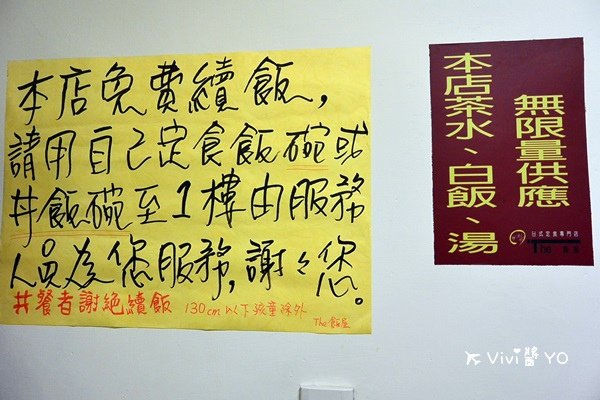 本店免費續飯，
請用自己定食飯碗或
丼飯碗至1樓由服務
人員為您服務，謝々您。
#餐者謝絕續飯 130cm以下孩童除外
The 飯屋
本店茶水、白飯、湯
無限量供應
日式定食專門店
The 飯屋
Vivi醬YO